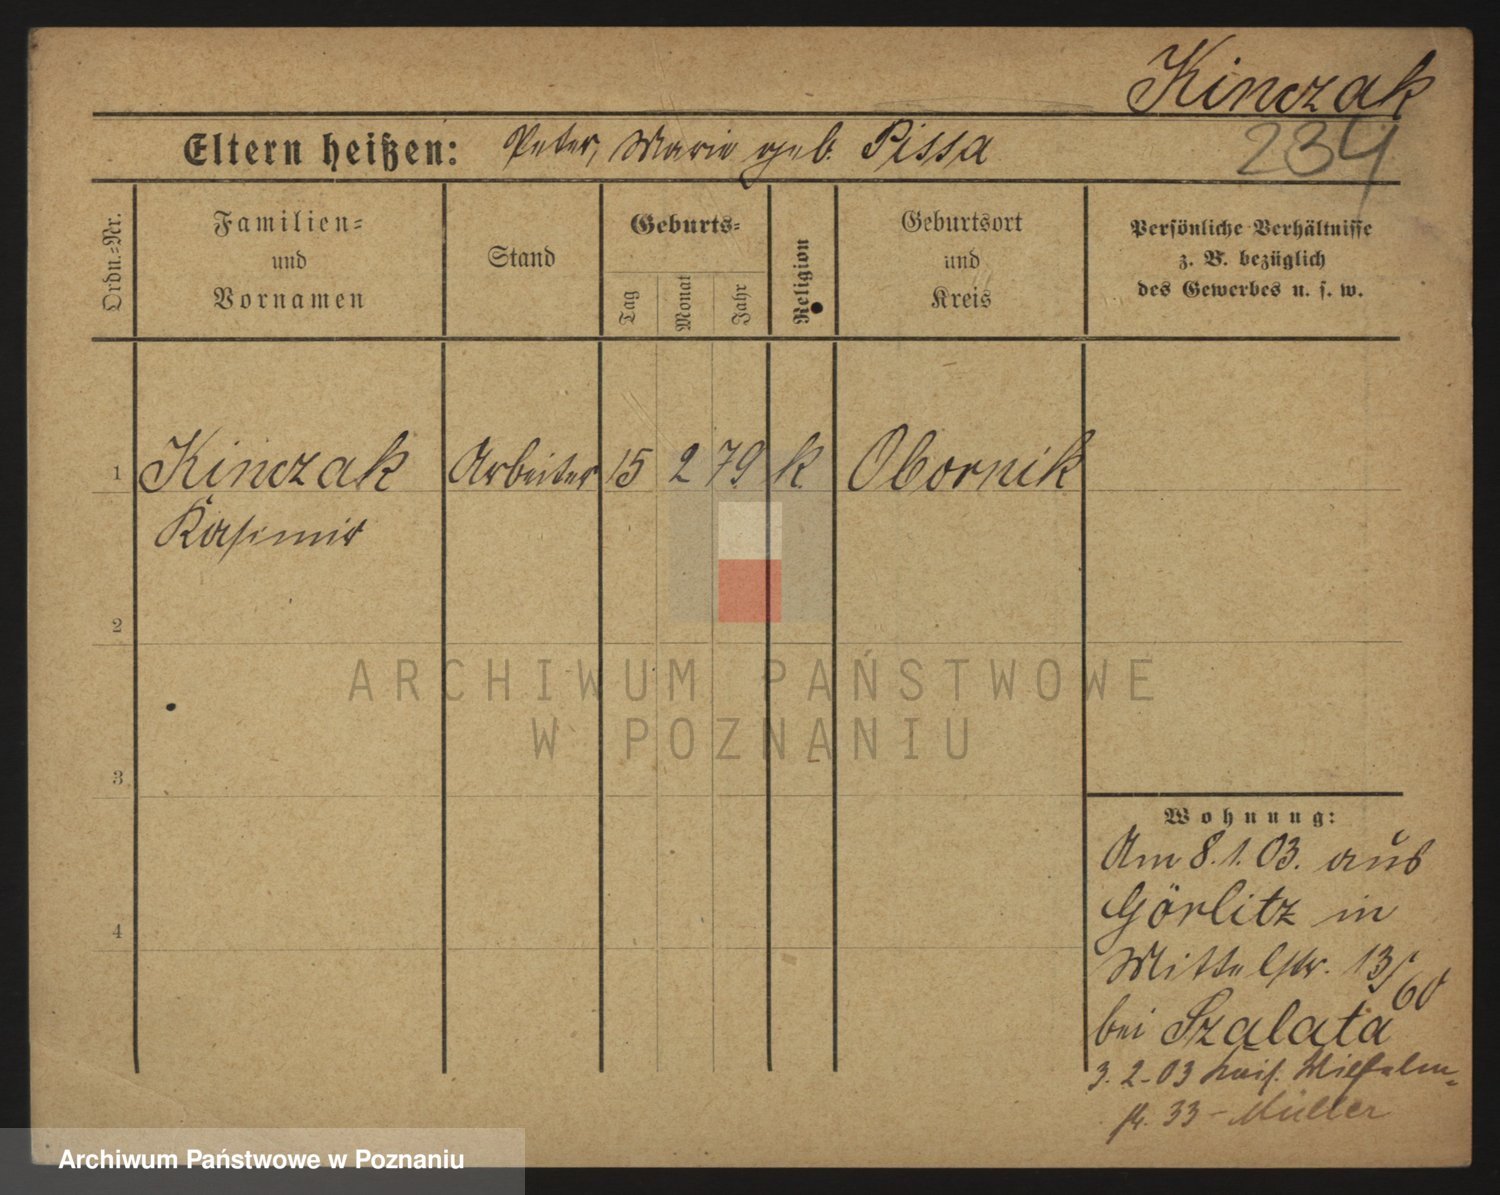 Kinczak
234
Eltern heißen: Peter, Marie geb. Pissa
Ordn.-Nr.
Familien-
und
Vornamen
Stand
Geburts-
Tag
Monat
Jahr
Religion
Geburtsort
und
Kreis
Persönliche Verhältnisse
z. B. bezüglich
des Gewerbes u. s. w.
1 Kinczak Arbeiter 15 2 79 k Obornik
Kasimir
2
3
4
ARCHIWUM PAŃSTWOWE
W POZNANIU
Wohnung:
Am 8.1.03. aus
Görlitz in
Mittelstr. 13/60
bei Szalata
3.2.03 Kais. Wilhelm-
str. 33 - Müller
Archiwum Państwowe w Poznaniu